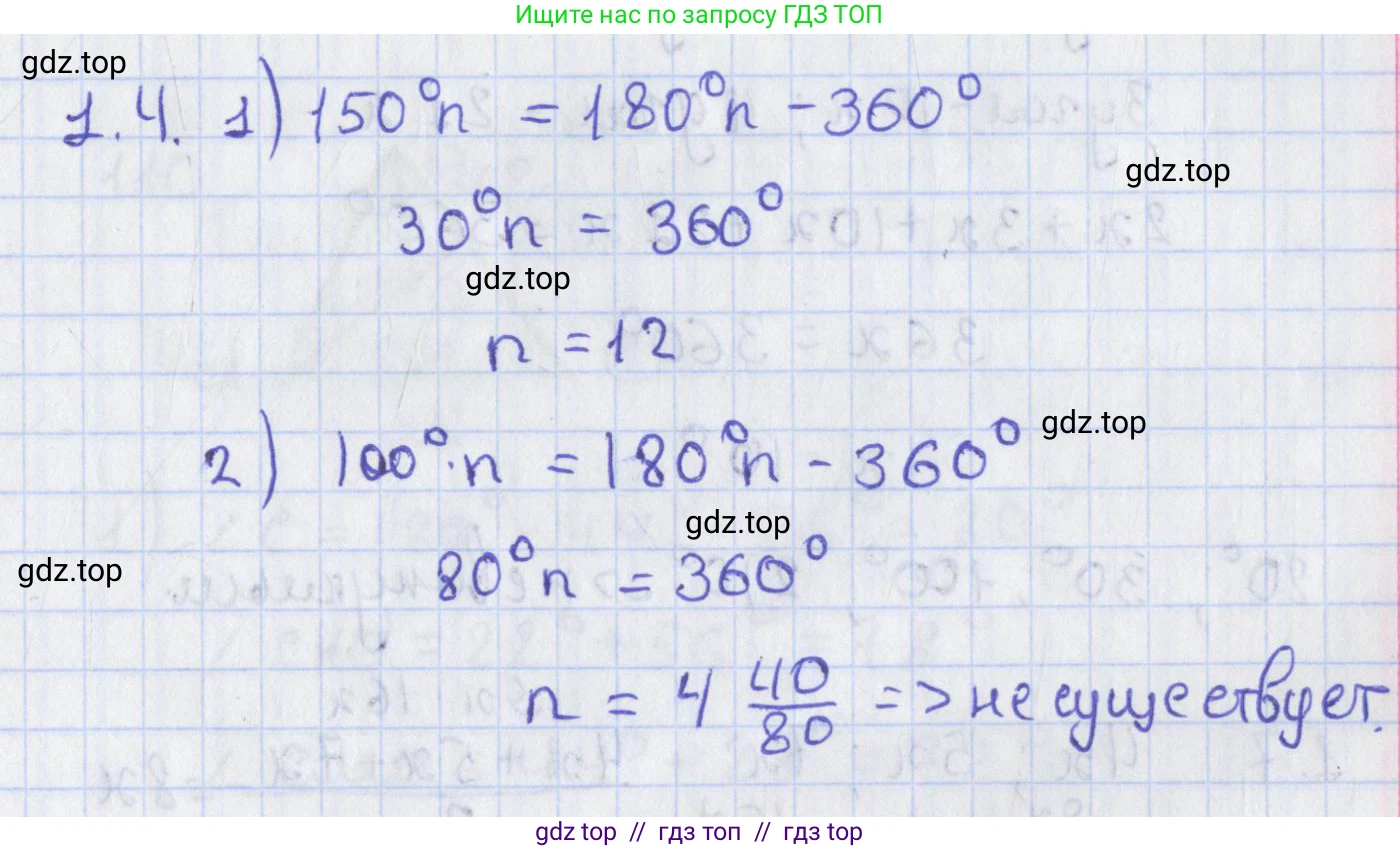 Ищите нас по запросу ГДЗ ТОП
gdz.top
1.4. 1) 150°n = 180°n - 360°
gdz.top
30°n = 360°
gdz.top
n = 12
gdz.top
2) 100°·n = 180°n - 360°
gdz.top
80°n = 360°
gdz.top
n = 4 40/80 => не существует.
gdz top // гдз топ // гдз top